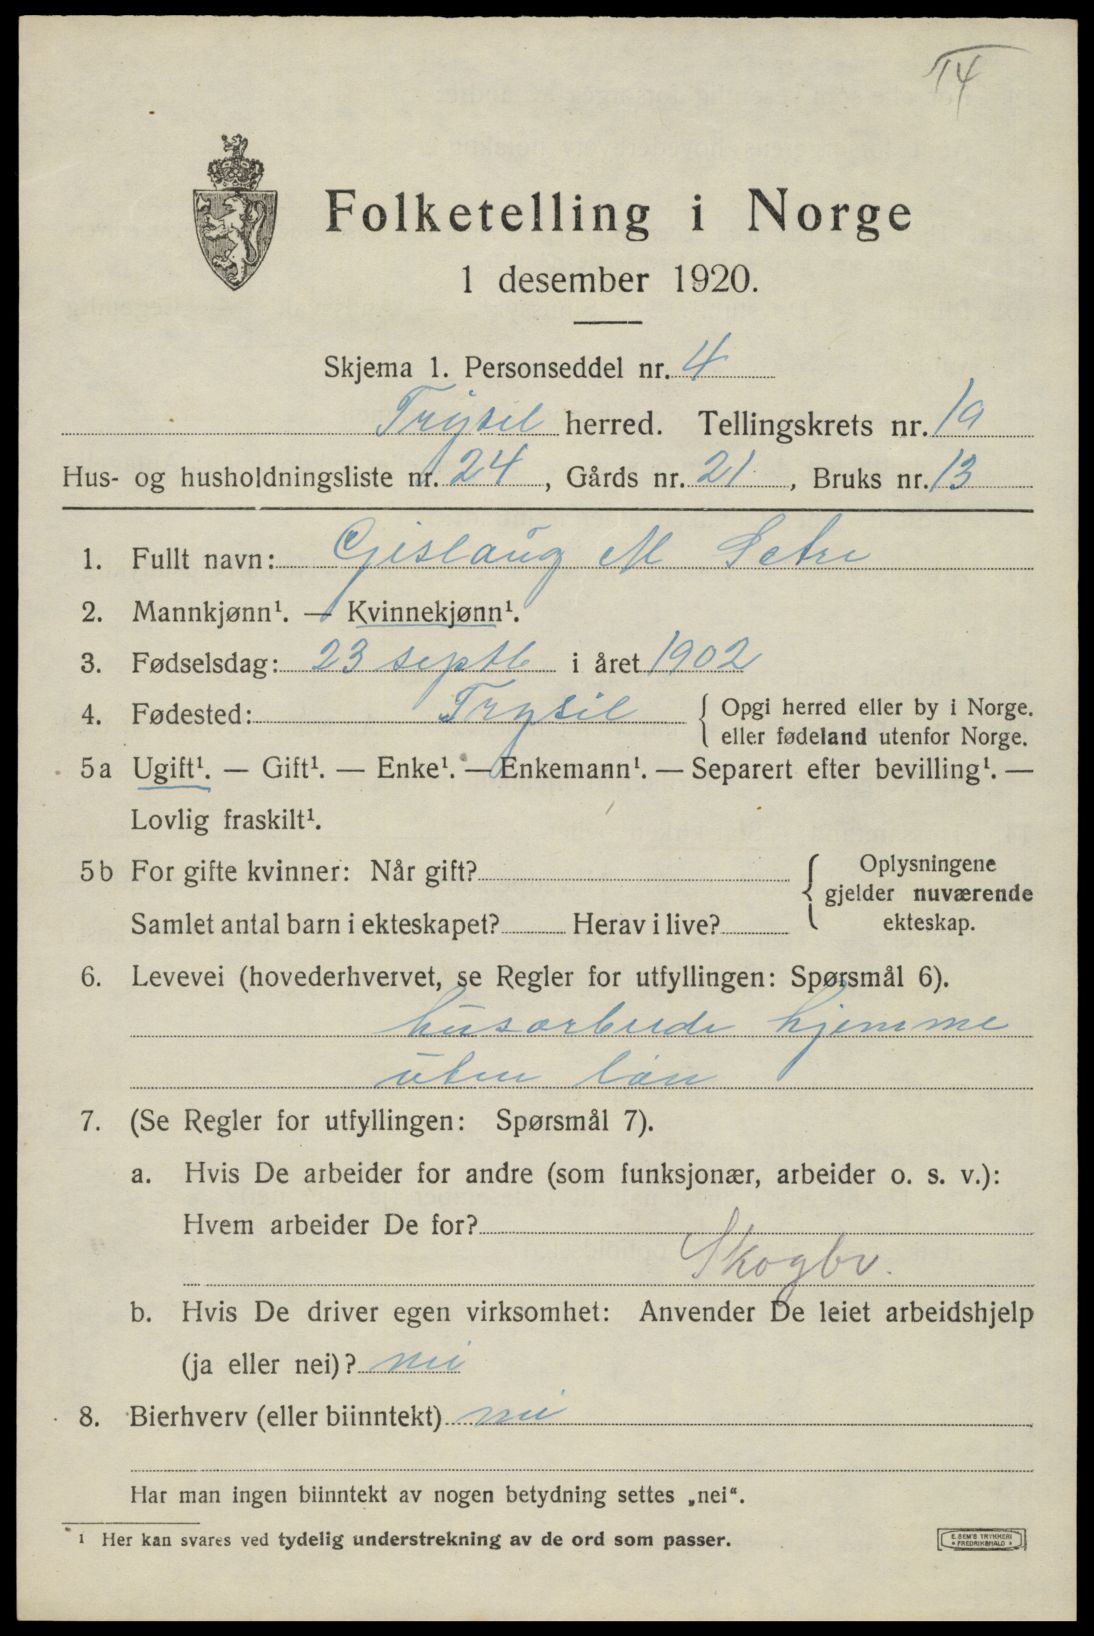 T4
Folketelling i Norge
1 desember 1920.
Skjema 1. Personseddel nr. 4
Trysil herred. Tellingskrets nr. 19
Hus- og husholdningsliste nr. 24, Gårds nr. 21, Bruks nr. 13
1. Fullt navn: Gislaug M Setre
2. Mannkjønn¹. — Kvinnekjønn¹.
3. Fødselsdag: 23 septb i året 1902
4. Fødested: Trysil { Opgi herred eller by i Norge.
eller fødeland utenfor Norge.
5a Ugift¹. — Gift¹. — Enke¹. — Enkemann¹. — Separert efter bevilling¹. —
Lovlig fraskilt¹.
5b For gifte kvinner: Når gift? { Oplysningene
gjelder nuværende
Samlet antal barn i ekteskapet? Herav i live? ekteskap.
6. Levevei (hovederhvervet, se Regler for utfyllingen: Spørsmål 6).
husarbeide hjemme
uten løn
7. (Se Regler for utfyllingen: Spørsmål 7).
a. Hvis De arbeider for andre (som funksjonær, arbeider o. s. v.):
Hvem arbeider De for?
Skogbr.
b. Hvis De driver egen virksomhet: Anvender De leiet arbeidshjelp
(ja eller nei)? nei
8. Bierhverv (eller biinntekt) nei
Har man ingen biinntekt av nogen betydning settes „nei“.
¹ Her kan svares ved tydelig understrekning av de ord som passer.
E. SEM'S TRYKKERI
FREDRIKSHALD